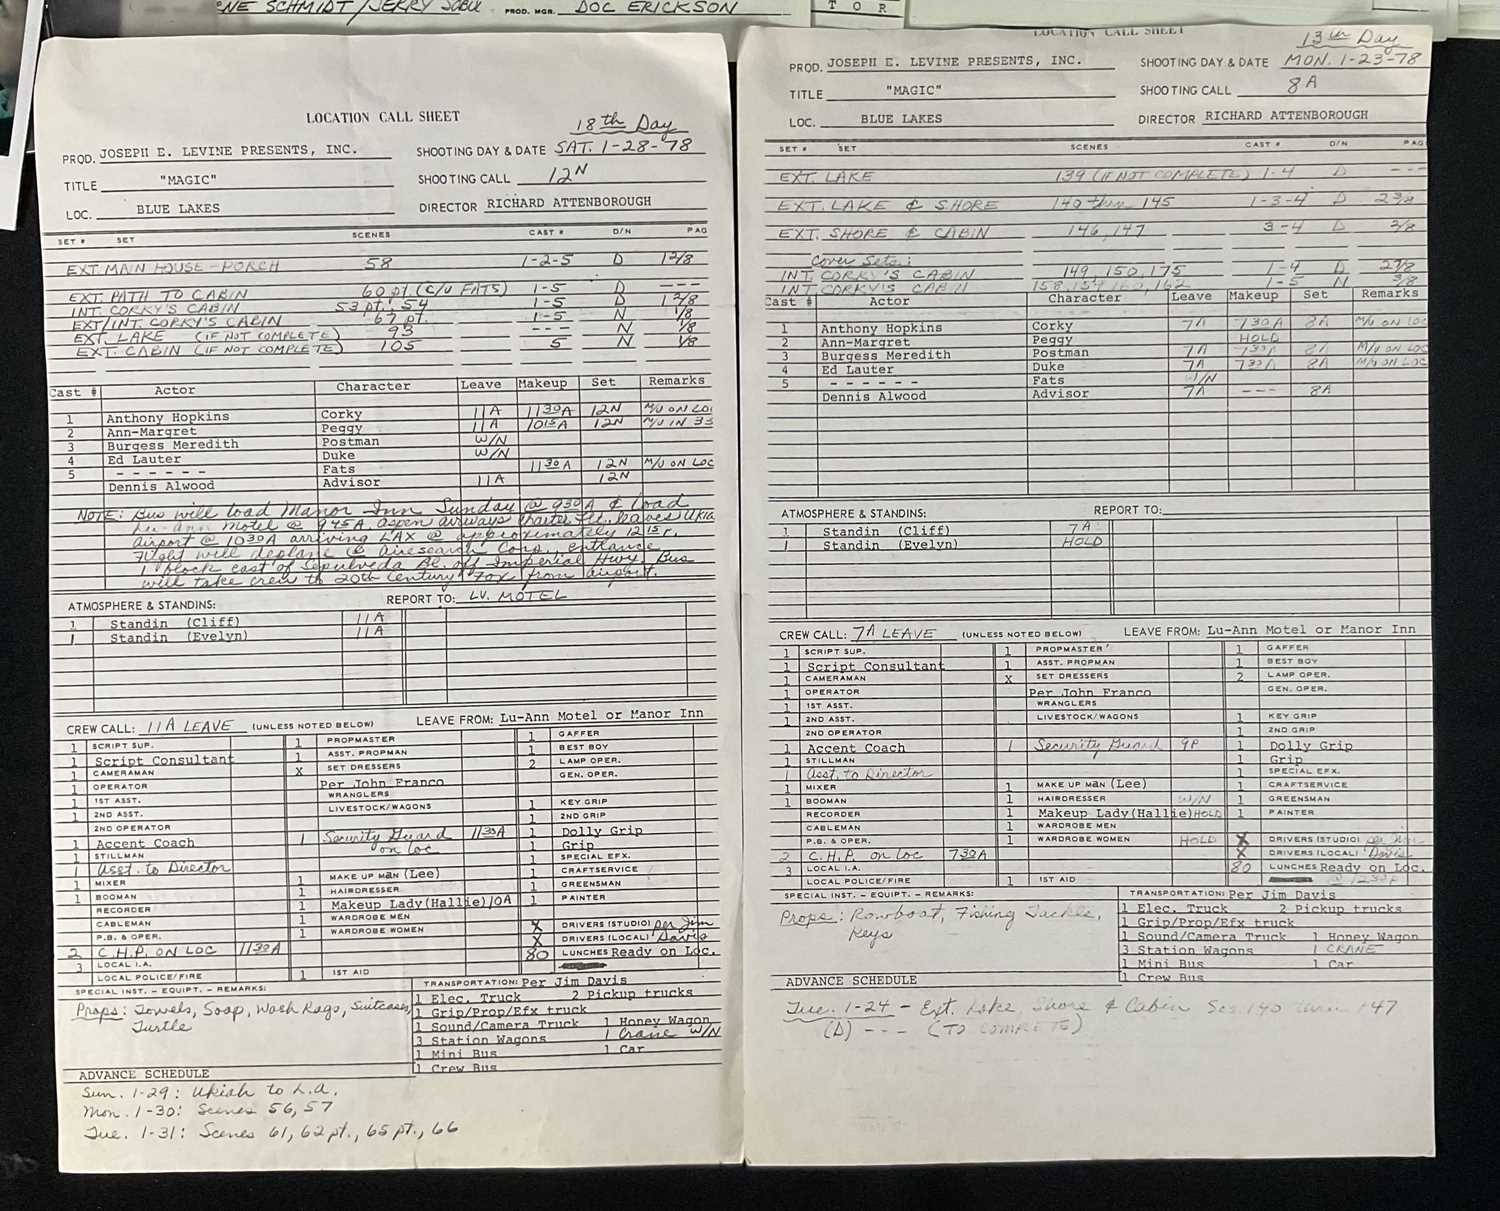 NE SCHMIDT/JERRY SOBUL PROD. MGR. DOC ERICKSON
T O R
LOCATION CALL SHEET
18th Day
PROD. JOSEPH E. LEVINE PRESENTS, INC. SHOOTING DAY & DATE SAT. 1-28-78
TITLE "MAGIC" SHOOTING CALL 12N
LOC. BLUE LAKES DIRECTOR RICHARD ATTENBOROUGH
SET # SET SCENES CAST # D/N PAG
EXT. MAIN HOUSE-PORCH 58 1-2-5 D 1 2/8
EXT. PATH TO CABIN 60 pt. (C/U FATS) 1-5 D ---
INT. CORKY'S CABIN 53 pt., 54 1-5 D 1 2/8
EXT/INT. CORKY'S CABIN 67 pt. 1-5 N 1/8
EXT. LAKE (IF NOT COMPLETE) 93 --- N 1/8
EXT. CABIN (IF NOT COMPLETE) 105 5 N 1/8
Cast # Actor Character Leave Makeup Set Remarks
1 Anthony Hopkins Corky 11A 1130A 12N M/U ON LOC
2 Ann-Margret Peggy 11A 1015A 12N M/U IN 33
3 Burgess Meredith Postman W/N
4 Ed Lauter Duke W/N
5 - - - - - - Fats 1130A 12N M/U ON LOC
Dennis Alwood Advisor 11A 12N
NOTE: Bus will load Manor Inn Sunday @ 930A & load
Lu-Ann Motel @ 945A. Aspen airways charter flt. leaves Ukia
airport @ 1030A arriving LAX @ approximately 1215P.
Flight will deplane @ Airesearch Corp., entrance
1 block east of Sepulveda Bl. off Imperial Hwy. Bus
will take crew to 20th Century Fox from airport.
ATMOSPHERE & STANDINS: REPORT TO: LU. MOTEL
1 Standin (Cliff) 11A
1 Standin (Evelyn) 11A
CREW CALL: 11A LEAVE (UNLESS NOTED BELOW) LEAVE FROM: Lu-Ann Motel or Manor Inn
1 SCRIPT SUP. 1 PROPMASTER 1 GAFFER
1 Script Consultant 1 ASST. PROPMAN 1 BEST BOY
1 CAMERAMAN X SET DRESSERS 2 LAMP OPER.
1 OPERATOR Per John Franco GEN. OPER.
1 1ST ASST. WRANGLERS
1 2ND ASST. LIVESTOCK/WAGONS 1 KEY GRIP
2ND OPERATOR 1 2ND GRIP
1 Accent Coach 1 Security Guard on loc 1130A 1 Dolly Grip
1 STILLMAN 1 Grip
1 Asst. to Director 1 SPECIAL EFX.
1 MIXER 1 MAKE UP MaN (Lee) 1 CRAFTSERVICE
1 BOOMAN 1 HAIRDRESSER 1 GREENSMAN
RECORDER 1 Makeup Lady(Hallie) 10A 1 PAINTER
CABLEMAN 1 WARDROBE MEN
P.B. & OPER. 1 WARDROBE WOMEN X DRIVERS (STUDIO) per Jim
2 C.H.P. ON LOC 1130A X DRIVERS (LOCAL) Davis
3 LOCAL I.A. 80 LUNCHES Ready on Loc.
LOCAL POLICE/FIRE 1 1ST AID
SPECIAL INST. - EQUIPT. - REMARKS: TRANSPORTATION: Per Jim Davis
Props: Towels, Soap, Wash Rags, Suitcases,
Turtle
1 Elec. Truck 2 Pickup trucks
1 Grip/Prop/Efx truck
1 Sound/Camera Truck 1 Honey Wagon
3 Station Wagons 1 Crane W/N
1 Mini Bus 1 Car
1 Crew Bus
ADVANCE SCHEDULE
Sun. 1-29: Ukiah to L.A.
Mon. 1-30: Scenes 56, 57
Tue. 1-31: Scenes 61, 62 pt., 65 pt., 66
LOCATION CALL SHEET
13th Day
PROD. JOSEPH E. LEVINE PRESENTS, INC. SHOOTING DAY & DATE MON. 1-23-78
TITLE "MAGIC" SHOOTING CALL 8A
LOC. BLUE LAKES DIRECTOR RICHARD ATTENBOROUGH
SET # SET SCENES CAST # D/N PAG
EXT. LAKE 139 (IF NOT COMPLETE) 1-4 D ---
EXT. LAKE & SHORE 140 thru 145 1-3-4 D 2 3/8
EXT. SHORE & CABIN 146, 147 3-4 D 3/8
Cover Sets:
INT. CORKY'S CABIN 149, 150, 175 1-4 D 2 7/8
INT. CORKY'S CABIN 158, 159, 160, 162 1-5 N 3/8
Cast # Actor Character Leave Makeup Set Remarks
1 Anthony Hopkins Corky 7A 730A 8A M/U ON LOC
2 Ann-Margret Peggy HOLD
3 Burgess Meredith Postman 7A 730A 8A M/U ON LOC
4 Ed Lauter Duke 7A 730A 8A M/U ON LOC
5 - - - - - - Fats W/N
Dennis Alwood Advisor 7A --- 8A
ATMOSPHERE & STANDINS: REPORT TO:
1 Standin (Cliff) 7A
1 Standin (Evelyn) HOLD
CREW CALL: 7A LEAVE (UNLESS NOTED BELOW) LEAVE FROM: Lu-Ann Motel or Manor Inn
1 SCRIPT SUP. 1 PROPMASTER 1 GAFFER
1 Script Consultant 1 ASST. PROPMAN 1 BEST BOY
1 CAMERAMAN X SET DRESSERS 2 LAMP OPER.
1 OPERATOR Per John Franco GEN. OPER.
1 1ST ASST. WRANGLERS
1 2ND ASST. LIVESTOCK/WAGONS 1 KEY GRIP
2ND OPERATOR 1 2ND GRIP
1 Accent Coach 1 Security Guard 9P 1 Dolly Grip
1 STILLMAN 1 Grip
1 Asst. to Director 1 SPECIAL EFX.
1 MIXER 1 MAKE UP MaN (Lee) 1 CRAFTSERVICE
1 BOOMAN 1 HAIRDRESSER W/N 1 GREENSMAN
RECORDER 1 Makeup Lady(Hallie) HOLD 1 PAINTER
CABLEMAN 1 WARDROBE MEN
P.B. & OPER. 1 WARDROBE WOMEN HOLD X DRIVERS (STUDIO) per Jim
2 C.H.P. on Loc 730A X DRIVERS (LOCAL) Davis
3 LOCAL I.A. 80 LUNCHES Ready on Loc.
LOCAL POLICE/FIRE 1 1ST AID @ 1230P
SPECIAL INST. - EQUIPT. - REMARKS: TRANSPORTATION: Per Jim Davis
Props: Rowboat, Fishing Tackle,
Keys
1 Elec. Truck 2 Pickup trucks
1 Grip/Prop/Efx truck
1 Sound/Camera Truck 1 Honey Wagon
3 Station Wagons 1 CRANE
1 Mini Bus 1 Car
1 Crew Bus
ADVANCE SCHEDULE
Tue. 1-24 - Ext. Lake, Shore & Cabin Scs. 140 thru 147
(D) --- (TO COMPLETE)